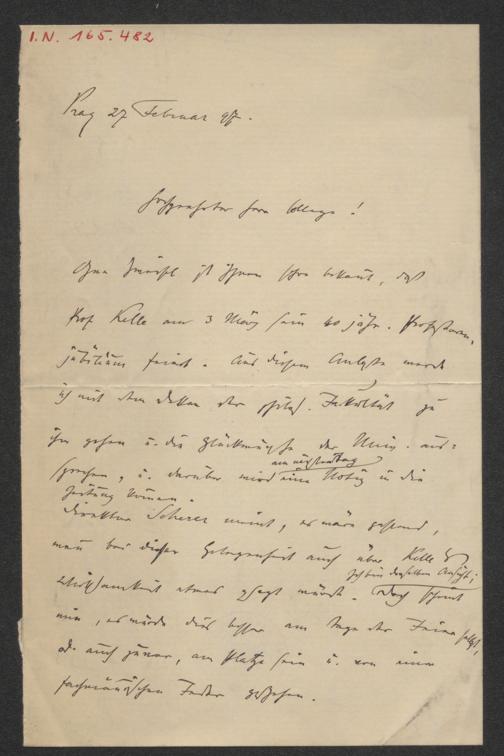 I.N. 165.482
Prag 27 Februar 97.
Hochgeehrter Herr College!
Ohne Zweifel ist Ihnen schon bekannt, daß
Prof Kelle am 3 März sein 40 jähr. Professoren-
jubiläum feiert. Aus diesem Anlasse werde
ich mit dem Dekan der philos. Fakultät zu
ihm gehen u. die Glückwünsche der Univ. aus-
sprechen, u. darüber wird am nächsten Tag eine Notiz in die
Zeitung kommen.
Direktor Scherer meint, es wäre passend,
wenn bei dieser Gelegenheit auch über Kelle's
Wirksamkeit etwas gesagt würde. Ich bin derselben Ansicht; Doch scheint
mir, es würde dies besser am Tage der Feier selbst,
od. auch zuvor, am Platze sein u. von einer
fachmännischen Feder geschehen.